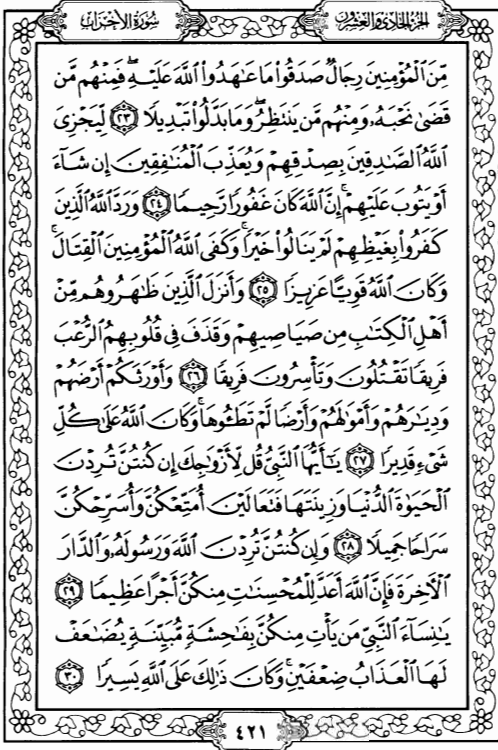 الجزء الحادي والعشرون
سورة الأحزاب
مِّنَ ٱلْمُؤْمِنِينَ رِجَالٌ صَدَقُوا۟ مَا عَٰهَدُوا۟ ٱللَّهَ عَلَيْهِ ۖ فَمِنْهُم مَّن
قَضَىٰ نَحْبَهُۥ وَمِنْهُم مَّن يَنتَظِرُ ۖ وَمَا بَدَّلُوا۟ تَبْدِيلًا ٢٣ لِّيَجْزِىَ
ٱللَّهُ ٱلصَّٰدِقِينَ بِصِدْقِهِمْ وَيُعَذِّبَ ٱلْمُنَٰفِقِينَ إِن شَآءَ
أَوْ يَتُوبَ عَلَيْهِمْ ۚ إِنَّ ٱللَّهَ كَانَ غَفُورًا رَّحِيمًا ٢٤ وَرَدَّ ٱللَّهُ ٱلَّذِينَ
كَفَرُوا۟ بِغَيْظِهِمْ لَمْ يَنَالُوا۟ خَيْرًا ۚ وَكَفَى ٱللَّهُ ٱلْمُؤْمِنِينَ ٱلْقِتَالَ ۚ
وَكَانَ ٱللَّهُ قَوِيًّا عَزِيزًا ٢٥ وَأَنزَلَ ٱلَّذِينَ ظَٰهَرُوهُم مِّنْ
أَهْلِ ٱلْكِتَٰبِ مِن صَيَاصِيهِمْ وَقَذَفَ فِى قُلُوبِهِمُ ٱلرُّعْبَ
فَرِيقًا تَقْتُلُونَ وَتَأْسِرُونَ فَرِيقًا ٢٦ وَأَوْرَثَكُمْ أَرْضَهُمْ
وَدِيَٰرَهُمْ وَأَمْوَٰلَهُمْ وَأَرْضًا لَّمْ تَطَـُٔوهَا ۚ وَكَانَ ٱللَّهُ عَلَىٰ كُلِّ
شَىْءٍ قَدِيرًا ٢٧ يَٰٓأَيُّهَا ٱلنَّبِىُّ قُل لِّأَزْوَٰجِكَ إِن كُنتُنَّ تُرِدْنَ
ٱلْحَيَوٰةَ ٱلدُّنْيَا وَزِينَتَهَا فَتَعَالَيْنَ أُمَتِّعْكُنَّ وَأُسَرِّحْكُنَّ
سَرَاحًا جَمِيلًا ٢٨ وَإِن كُنتُنَّ تُرِدْنَ ٱللَّهَ وَرَسُولَهُۥ وَٱلدَّارَ
ٱلْءَاخِرَةَ فَإِنَّ ٱللَّهَ أَعَدَّ لِلْمُحْسِنَٰتِ مِنكُنَّ أَجْرًا عَظِيمًا ٢٩
يَٰنِسَآءَ ٱلنَّبِىِّ مَن يَأْتِ مِنكُنَّ بِفَٰحِشَةٍ مُّبَيِّنَةٍ يُضَٰعَفْ
لَهَا ٱلْعَذَابُ ضِعْفَيْنِ ۚ وَكَانَ ذَٰلِكَ عَلَى ٱللَّهِ يَسِيرًا ٣٠
٤٢١